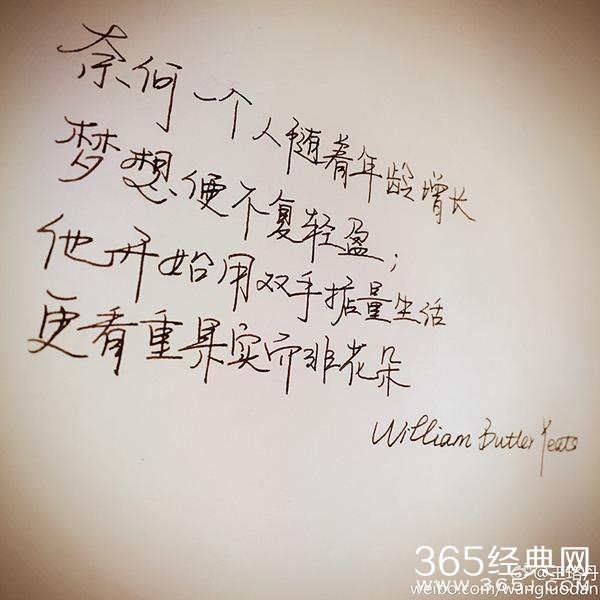 奈何一个人随着年龄增长
梦想便不复轻盈；
他开始用双手掂量生活
更看重果实而非花朵
William Butler Yeats
365经典网
@王珞丹
www.365
.COM
weibo.com/wangluodan